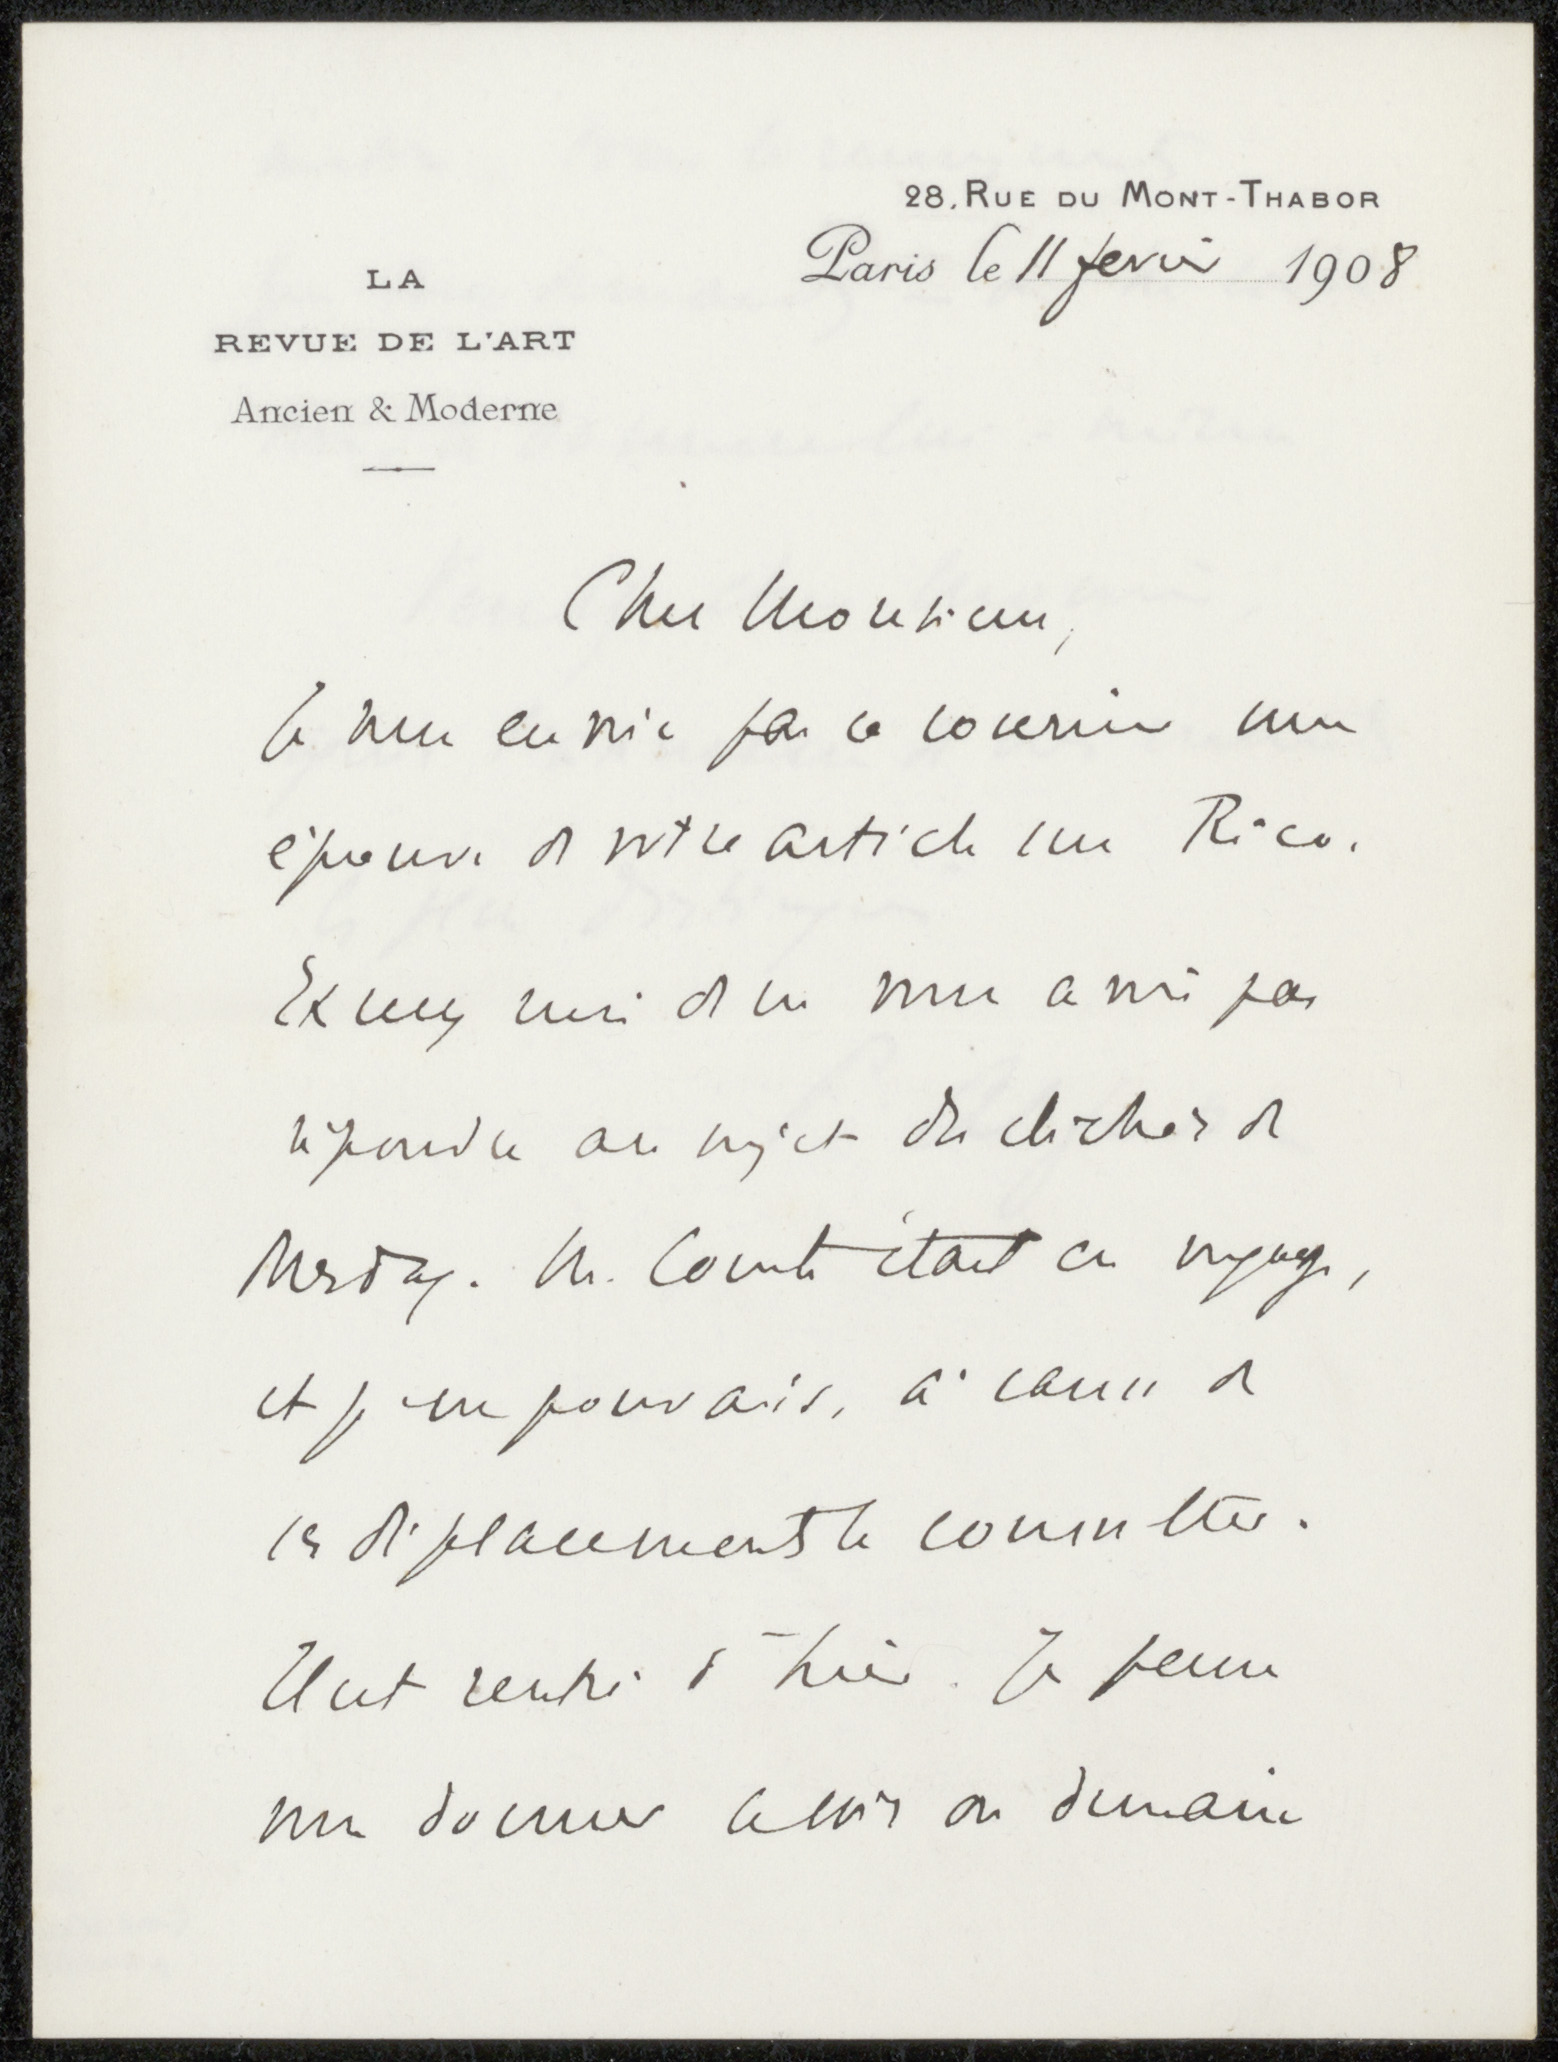 28, RUE DU MONT-THABOR
Paris le 11 fevrier 1908
LA
REVUE DE L'ART
Ancien & Moderne
Cher Monsieur,
Je vous envoie par ce courrier une
épreuve de votre article sur Rico.
Excusez moi de ne vous avoir pas
répondu au sujet des clichés de
Mesdag. M. Comte était en voyage,
et je ne pouvais, à cause de
ces déplacements le consulter.
Il est rentré d'hier. Je pense
vous donner ce soir ou demain